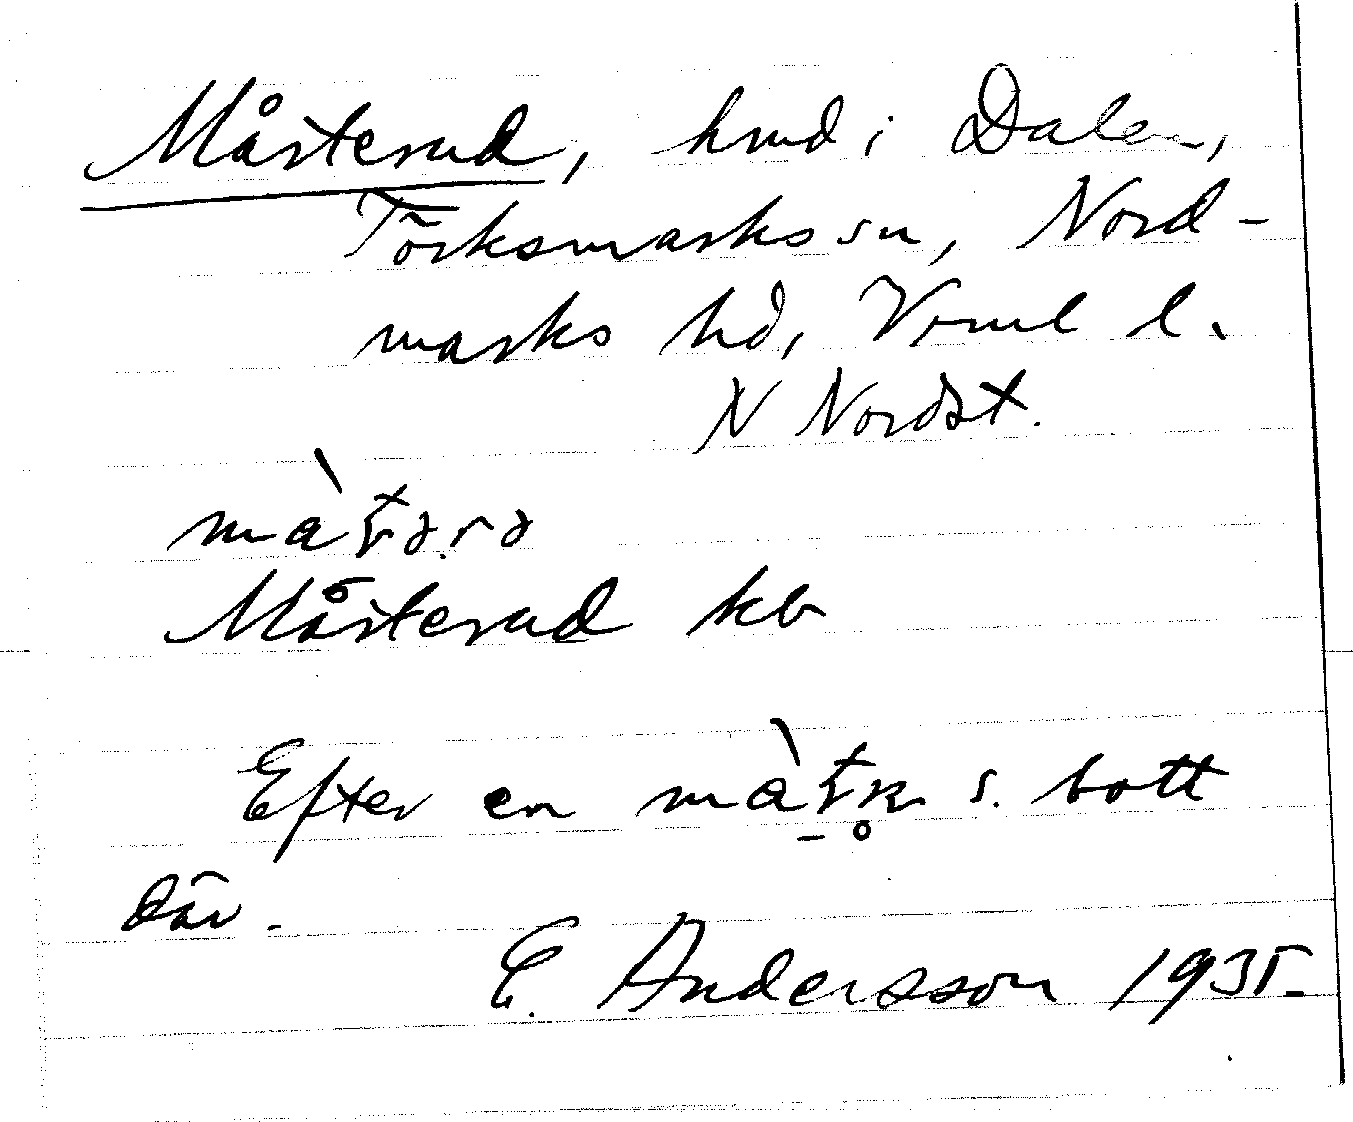 Mårterud, hmd i Dalen,
Törksmarks sn, Nord-
marks hd, Vrml l.
N Nordst.
Mårterud kb
Efter en s. bott
där.
E. Andersson 1935.